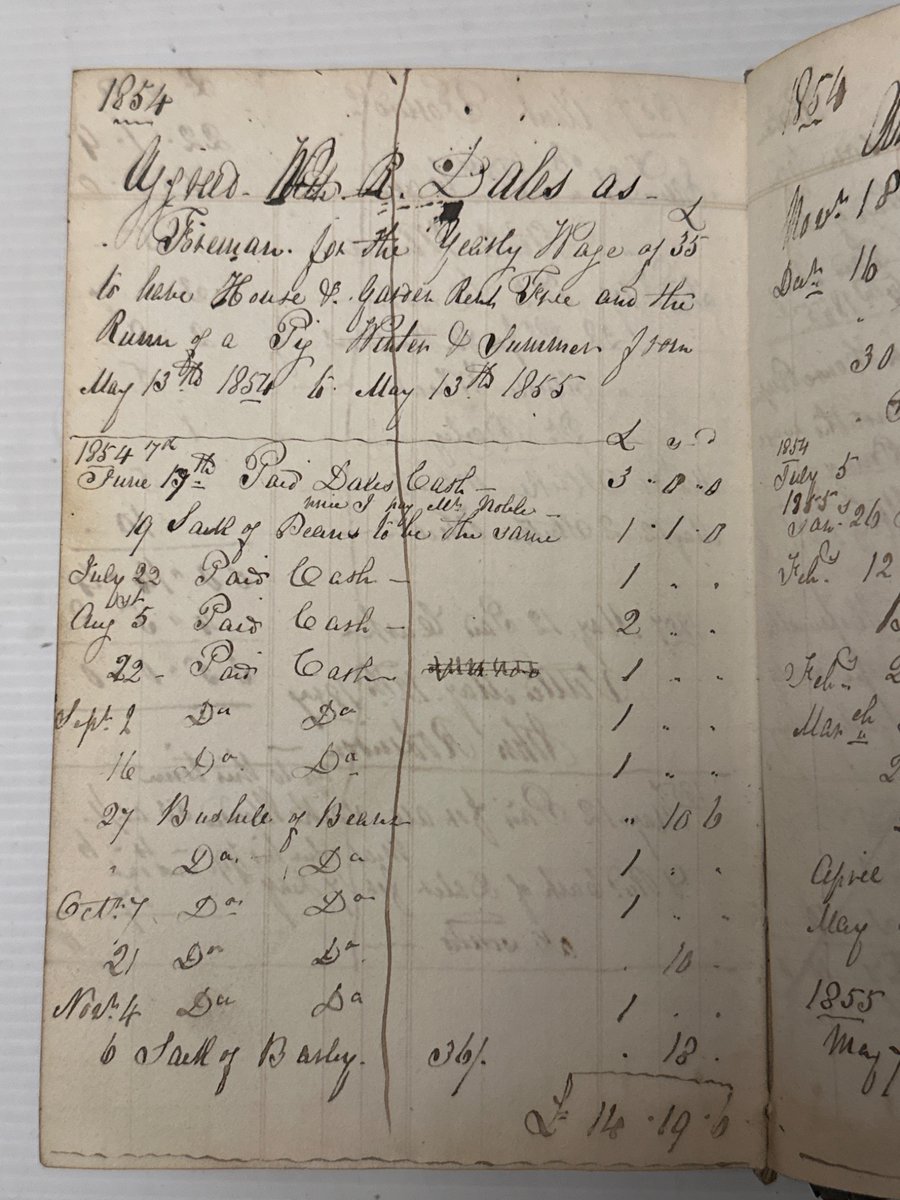 1854
Agreed With R. Dales as
£
Foreman. for the Yearly Wage of 35
to have House & Garden Rent Free and the
Runn of a Pig Winter & Summer from
May 13th 1854 to May 13th 1855
£ s d
1854
June 17th Paid Dales Cash 3 " 0 " 0
I pay Mr Noble
19 Sack of Beans to be the same 1 " 1 " 0
July 22 Paid Cash 1 " "
Augst 5 Paid Cash 2 " "
22 Paid Cash 1 " "
Sept. 2 Do Do 1 " "
16 Do Do 1 " "
27 Bushile of Beans " 10 6
" Do Do 1 " "
Octr. 7 Do Do 1 " "
21 Do Do . 10 .
Novr. 4 Do Do 1 . .
6 Sack of Barley. 36/. . 18 .
£ 14 " 19 " 6
1854
Novr. 18
16
30
1854
July 5
1855
Jany. 26
Feby. 12
Feby.
March
April
May
1855
May